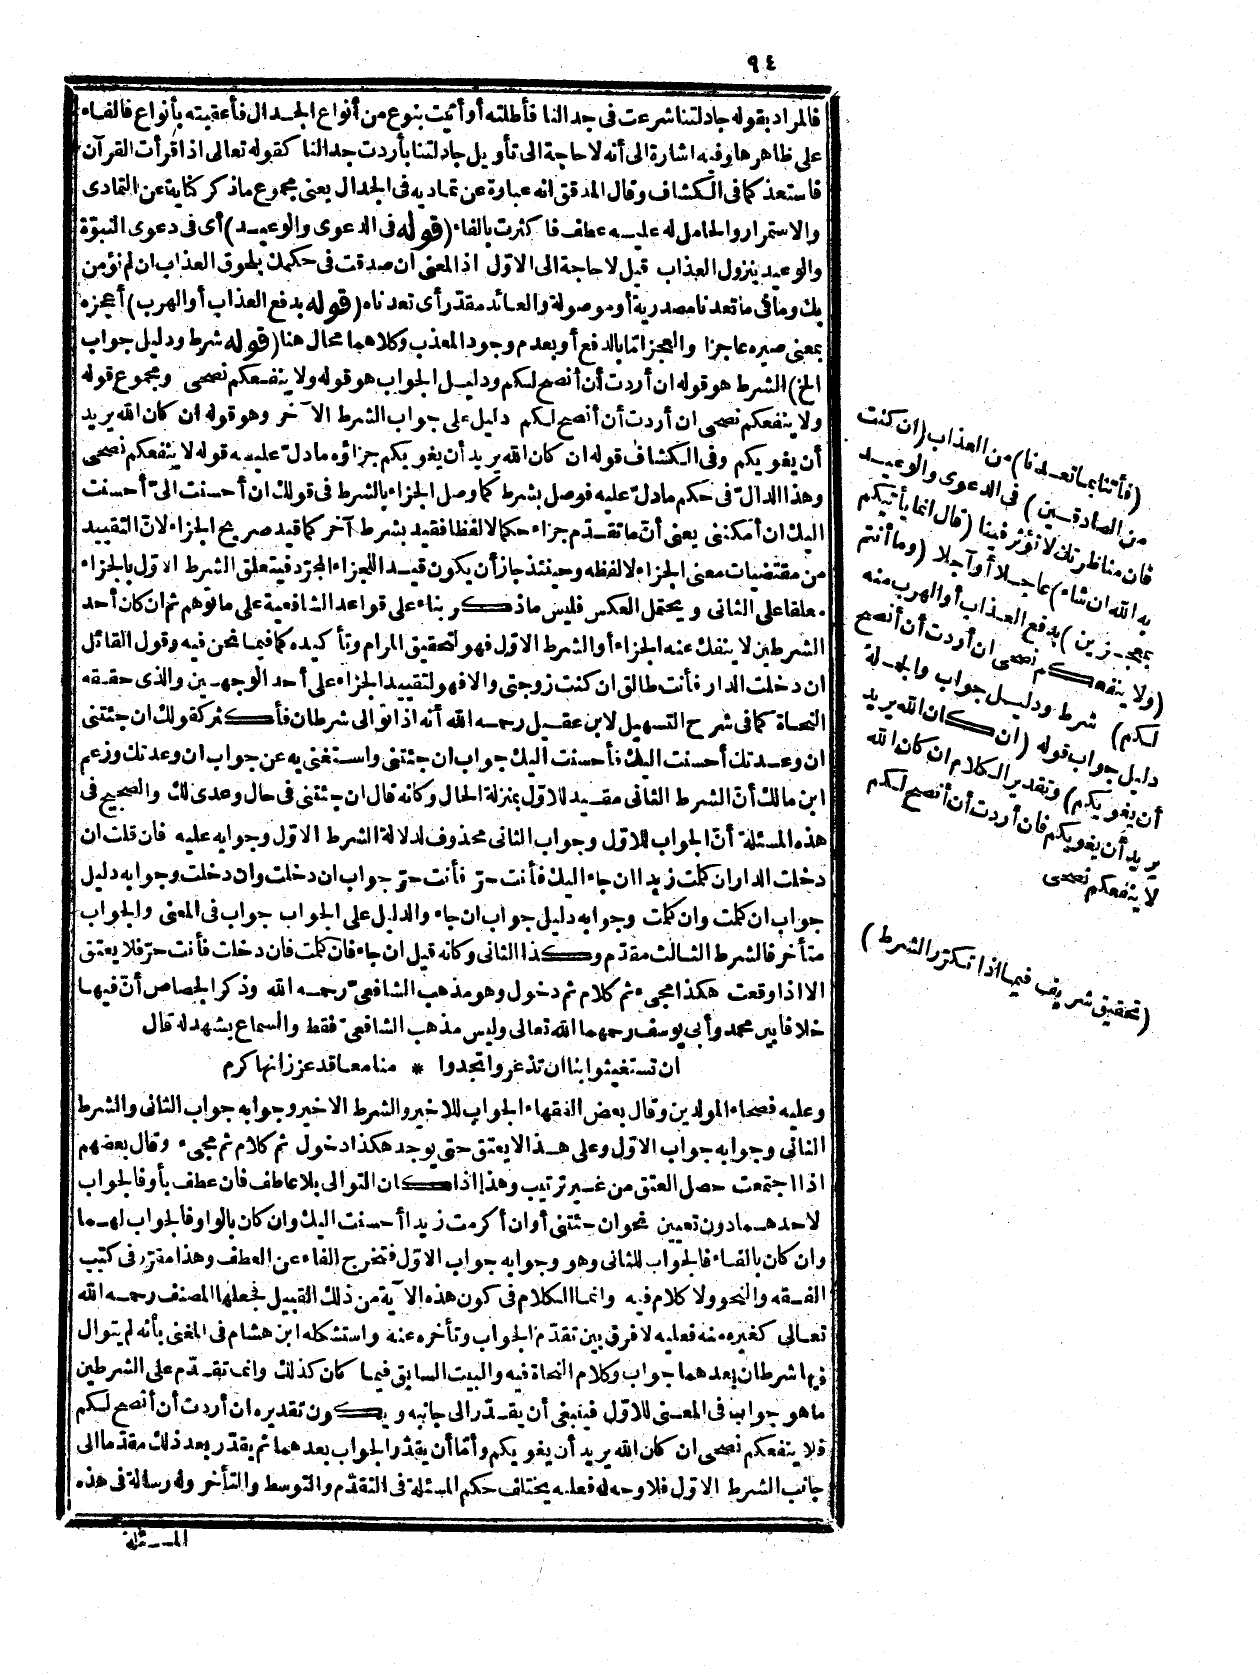 ٩٤
فالمراد بقوله جادلتنا شرعت في جدالنا فأطلته أو أتيت بنوع من أنواع الجدال فأعقبته بأنواع فالفاء
على ظاهرها وفيه اشارة الى أنه لا حاجة الى تأويل جادلتنا بأردت جدالنا كقوله تعالى اذا قرأت القرآن
فاستعذ كما فى الكشاف وقال المدقق انه عبارة عن تماديه فى الجدال يعنى مجموع ماذكر كناية عن التمادى
والاستمرار والحامل له عليه عطف فاكثرت بالفاء (قوله فى الدعوى والوعيد) أى فى دعوى النبوّة
والوعيد بنزول العذاب قيل لا حاجة الى الاوّل اذ المعنى ان صدقت فى حكمك بلحوق العذاب ان لم نؤمن
بك وما فى ما تعدنا مصدرية أو موصولة والعائد مقدّر أى تعدناه (قوله بدفع العذاب أو الهرب) أعجزه
بمعنى صيره عاجزا والعجز اما بالدفع أو بعدم وجود المعذب وكلاهما محال هنا (قوله شرط ودليل جواب
الخ) الشرط هو قوله ان أردت أن أنصح لكم ودليل الجواب هو قوله ولا ينفعكم نصحى ومجموع قوله
ولا ينفعكم نصحى ان أردت أن أنصح لكم دليل على جواب الشرط الآخر وهو قوله ان كان الله يريد
أن يغويكم وفى الكشاف قوله ان كان الله يريد أن يغويكم جزاؤه مادلّ عليه قوله لا ينفعكم نصحى
وهذا الدالّ فى حكم مادلّ عليه فوصل بشرط كما وصل الجزاء بالشرط فى قولك ان أحسنت الىّ أحسنت
اليك ان أمكننى يعنى أنّ ما تقدّم جزاء حكما لا لفظا فقيد بشرط آخر كما قيد صريح الجزاء لانّ التقييد
من مقتضيات معنى الجزاء لا لفظه وحينئذ جاز أن يكون قيدا للجزاء المجرّد فيتعلق الشرط الاوّل بالجزاء
معلقا على الثانى ويحتمل العكس فليس ماذكر بناء على قواعد الشافعية على ماتوهم ثم ان كان أحد
الشرطين لا ينفك عنه الجزاء أو الشرط الاوّل فهو لتحقيق المرام وتأكيده كما فيما نحن فيه وقول القائل
ان دخلت الدار فأنت طالق ان كنت زوجتى والا فهو لتقييد الجزاء على أحد الوجهين والذى حققه
النحاة كما فى شرح التسهيل لابن عقيل رحمه الله أنه اذا توالى شرطان فأكثر كقولك ان جئتنى
ان وعدتك أحسنت اليك فأحسنت اليك جواب ان جئتنى واستغنى به عن جواب ان وعدتك وزعم
ابن مالك أنّ الشرط الثانى مقيد للاوّل بمنزلة الحال وكانه قال ان جئتنى فى حال وعدى لك والصحيح فى
هذه المسئلة أنّ الجواب للاوّل وجواب الثانى محذوف لدلالة الشرط الاوّل وجوابه عليه فان قلت ان
دخلت الدار ان كلت زيدا ان جاء اليك فأنت حرّ فأنت حرّ جواب ان دخلت وان دخلت وجوابه دليل
جواب ان كلت وان كلت وجوابه دليل جواب ان جاء والدليل على الجواب جواب فى المعنى والجواب
متأخر فالشرط الثالث مقدّم وكذا الثانى وكانه قيل ان جاء فان كلت فان دخلت فأنت حرّ فلا يعتق
الا اذا وقعت هكذا مجىء ثم كلام ثم دخول وهو مذهب الشافعىّ رحمه الله وذكر الجصاص أنّ فيها
خلافا بين محمد وأبى يوسف رحمهما الله تعالى وليس مذهب الشافعىّ فقط والسماع يشهد له قال
ان تستغيثوا بنا ان تذعروا تجدوا * منا معاقد عز زانها كرم
وعليه فصحاء المولدين وقال بعض الفقهاء الجواب للاخير والشرط الاخير وجوابه جواب الثانى والشرط
الثانى وجوابه جواب الاوّل وعلى هذا لا يعتق حتى يوجد هكذا دخول ثم كلام ثم مجىء وقال بعضهم
اذا اجتمعت حصل العتق من غير ترتيب وهذا اذا كان التوالى بلا عاطف فان عطف بأو فالجواب
لاحدهما دون تعيين نحو ان جئتنى أو ان أكرمت زيدا أحسنت اليك وان كان بالواو فالجواب لهما
وان كان بالفاء فالجواب للثانى وهو وجوابه جواب الاوّل فتخرج الفاء عن العطف وهذا مقرّر فى كتب
الفقه والنحو ولا كلام فيه وانما الكلام فى كون هذه الآية من ذلك القبيل فجعلها المصنف رحمه الله
تعالى كغيره منه فعليه لا فرق بين تقدّم الجواب وتأخره عنه واستشكله ابن هشام فى المغنى بأنه لم يتوال
فيها شرطان بعدهما جواب وكلام النحاة فيه والبيت السابق فيما كان كذلك وانما تقدّم على الشرطين
ماهو جواب فى المعنى للاوّل فينبغى أن يقدّر الى جانبه ويكون تقديره ان أردت أن أنصح لكم
فلا ينفعكم نصحى ان كان الله يريد أن يغويكم وأمّا أن يقدّر الجواب بعدهما ثم يقدّر بعد ذلك مقدّما الى
جانب الشرط الاوّل فلا وجه له فعليه يختلف حكم المسئلة فى التقدّم والتوسط والتأخر وله رسالة فى هذه
المسئلة
(فأتنا بما تعدنا) من العذاب (ان كنت
من الصادقين) فى الدعوى والوعيد
فان مناظرتك لا تؤثر فينا (قال انما يأتيكم
به الله ان شاء) عاجلا أو آجلا (وما أنتم
بمعجزين) بدفع العذاب أو الهرب منه
(ولا ينفعكم نصحى ان أردت أن أنصح
لكم) شرط ودليل جواب والجملة
دليل جواب قوله (ان كان الله يريد
أن يغويكم) وتقدير الكلام ان كان الله
يريد أن يغويكم فان أردت أن أنصح لكم
لا ينفعكم نصحى
(تحقيق شريف فيما اذا تكرّر الشرط)